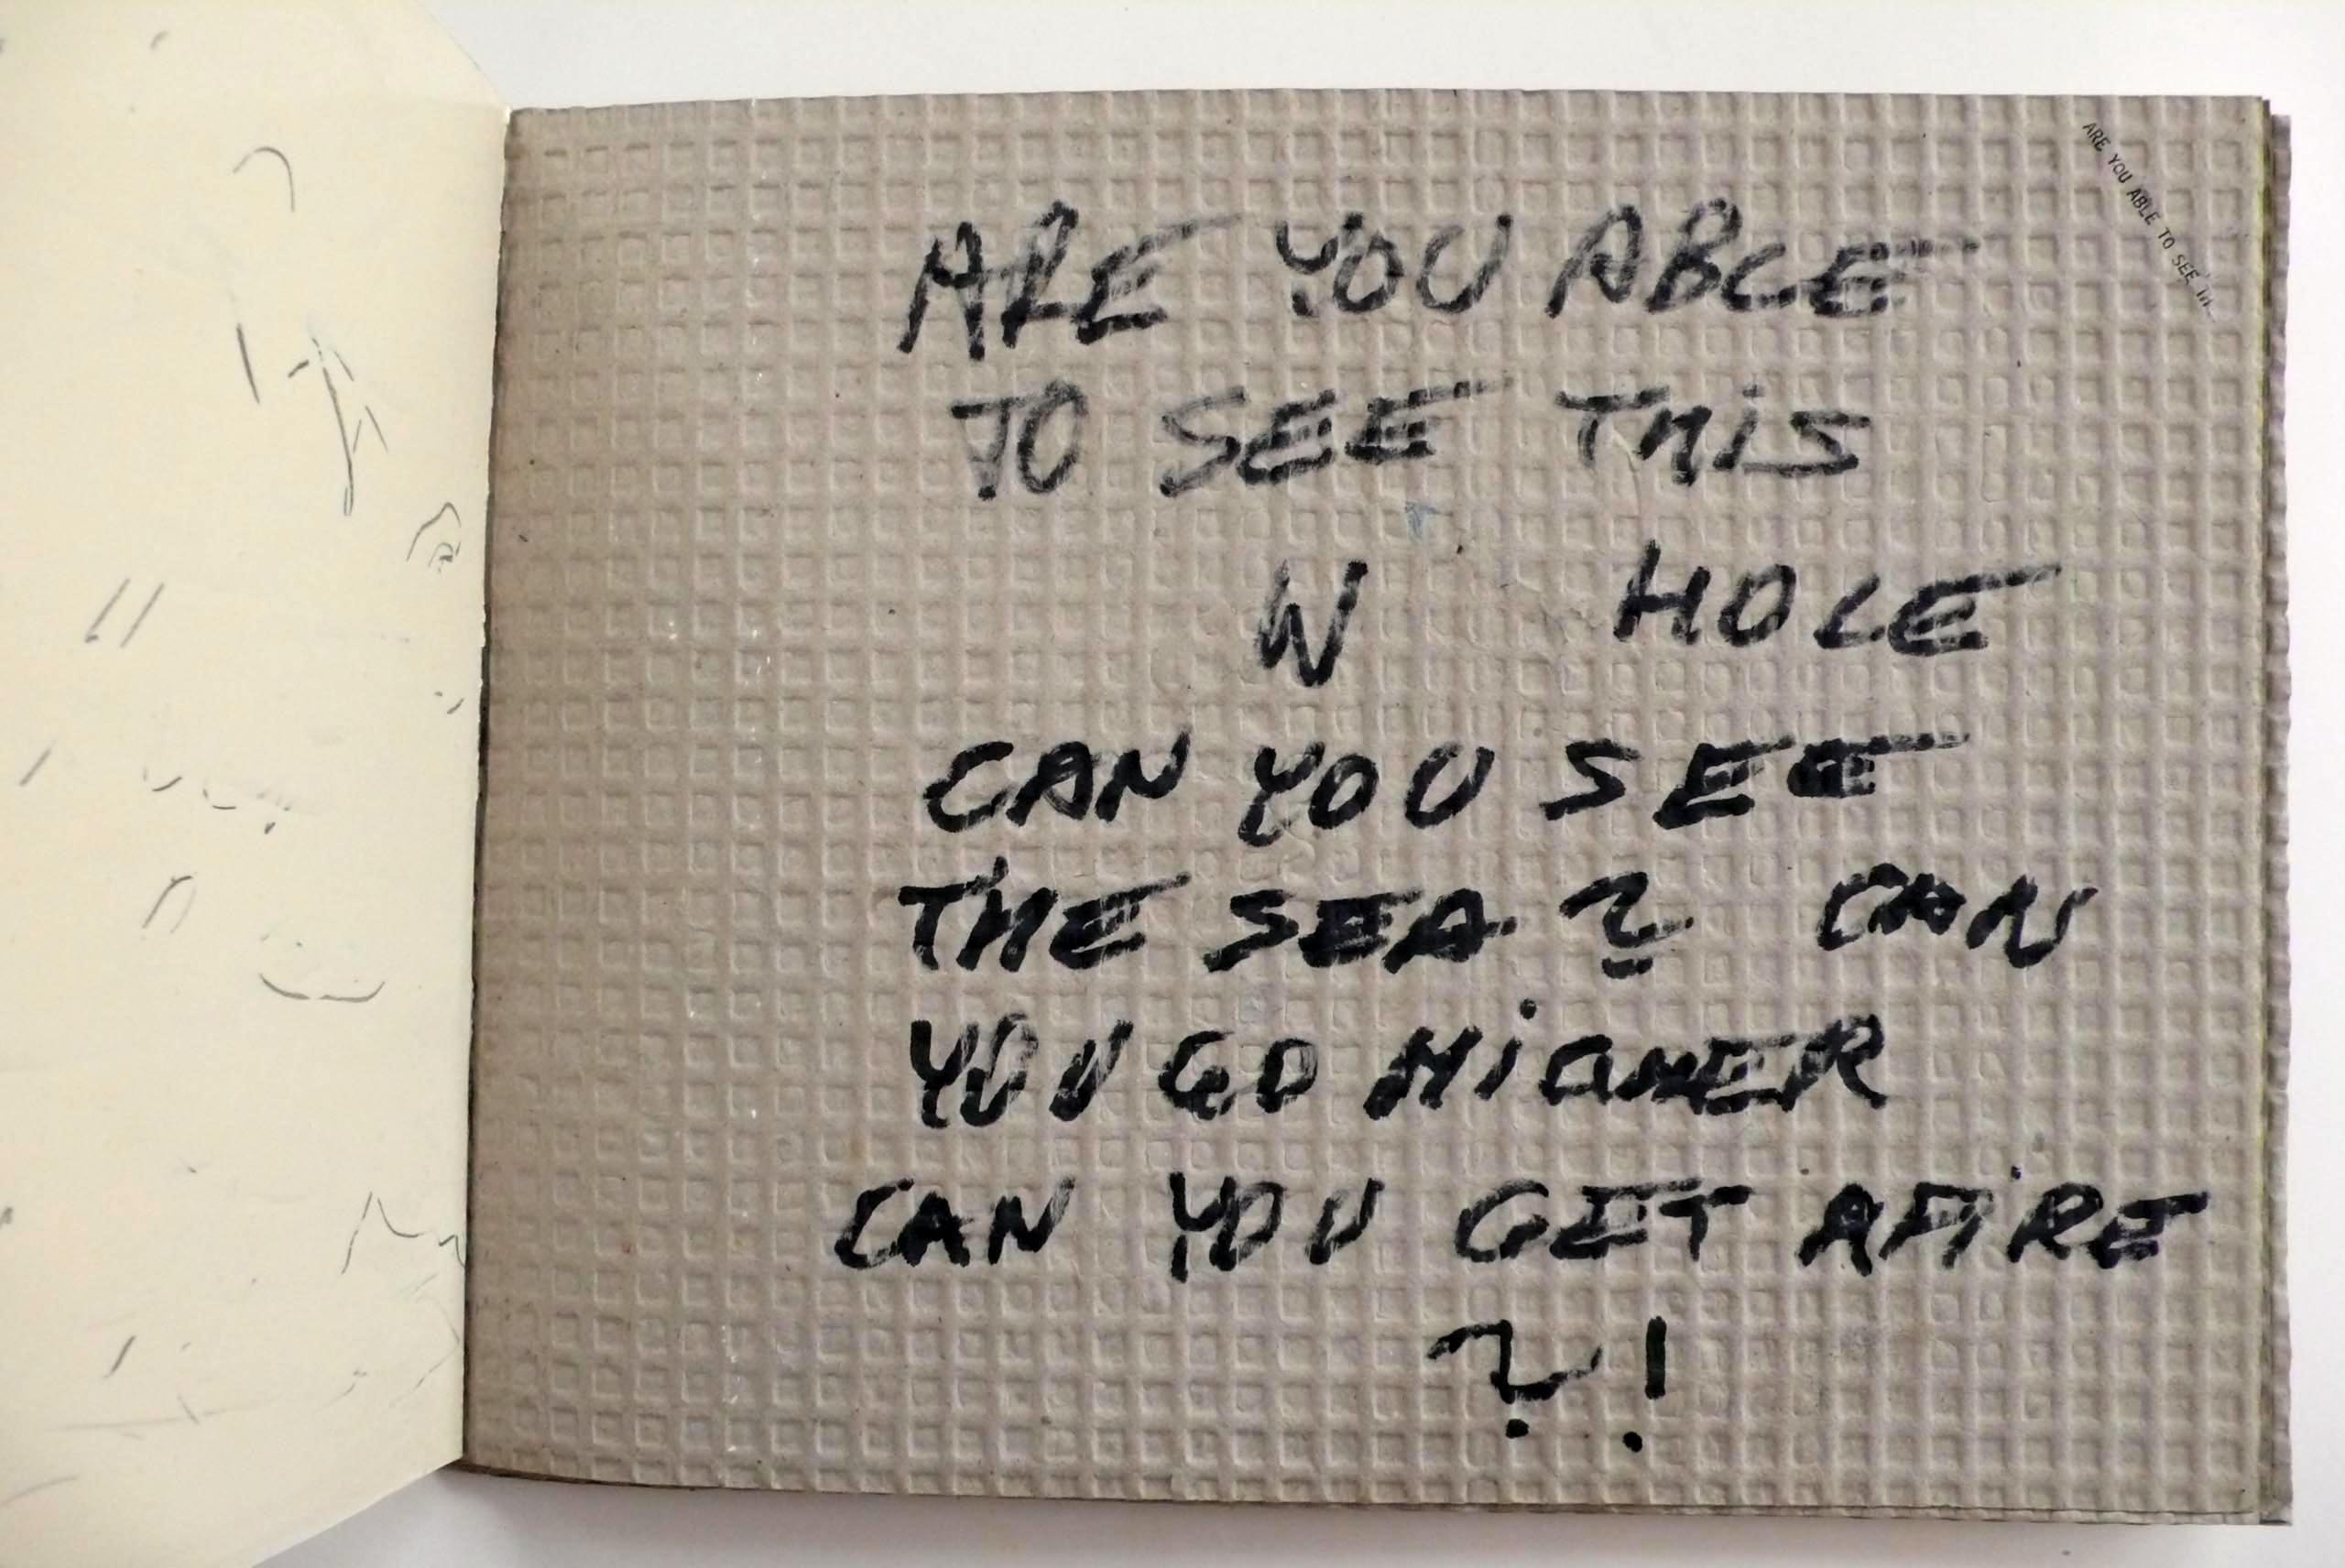 ARE YOU ABLE TO SEE in
ARE YOU ABLE
TO SEE THiS
W HOLE
CAN YOU SEE
THE SEA ? CAN
YOU GO HiGHER
CAN YOU GET AFiRE
?!